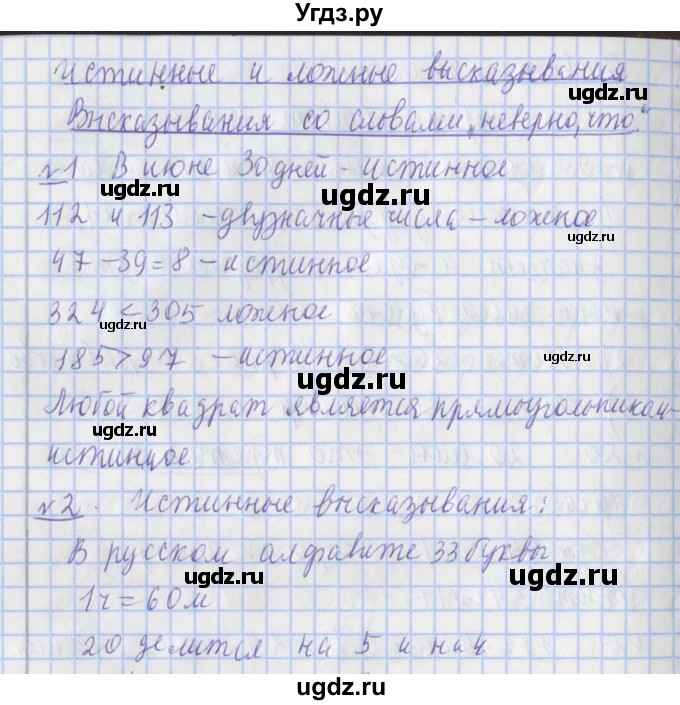 Угдз.ру
Истинные и ложные высказывания
Высказывания со словами „неверно, что“
№1 В июне 30 дней - истинное
угдз.ru
112 и 113 - двузначные числа - ложное
угдз.ru
47 - 39 = 8 - истинное
угдз.ru
324 < 305 ложное
угдз.ru
185 > 97 - истинное
угдз.ru
Любой квадрат является прямоугольником -
угдз.ru
истинное
№2. Истинные высказывания:
угдз.ru
В русском алфавите 33 буквы
угдз.ru
1ч = 60м
угдз.ru
20 делится на 5 и на 4
угдз.ru